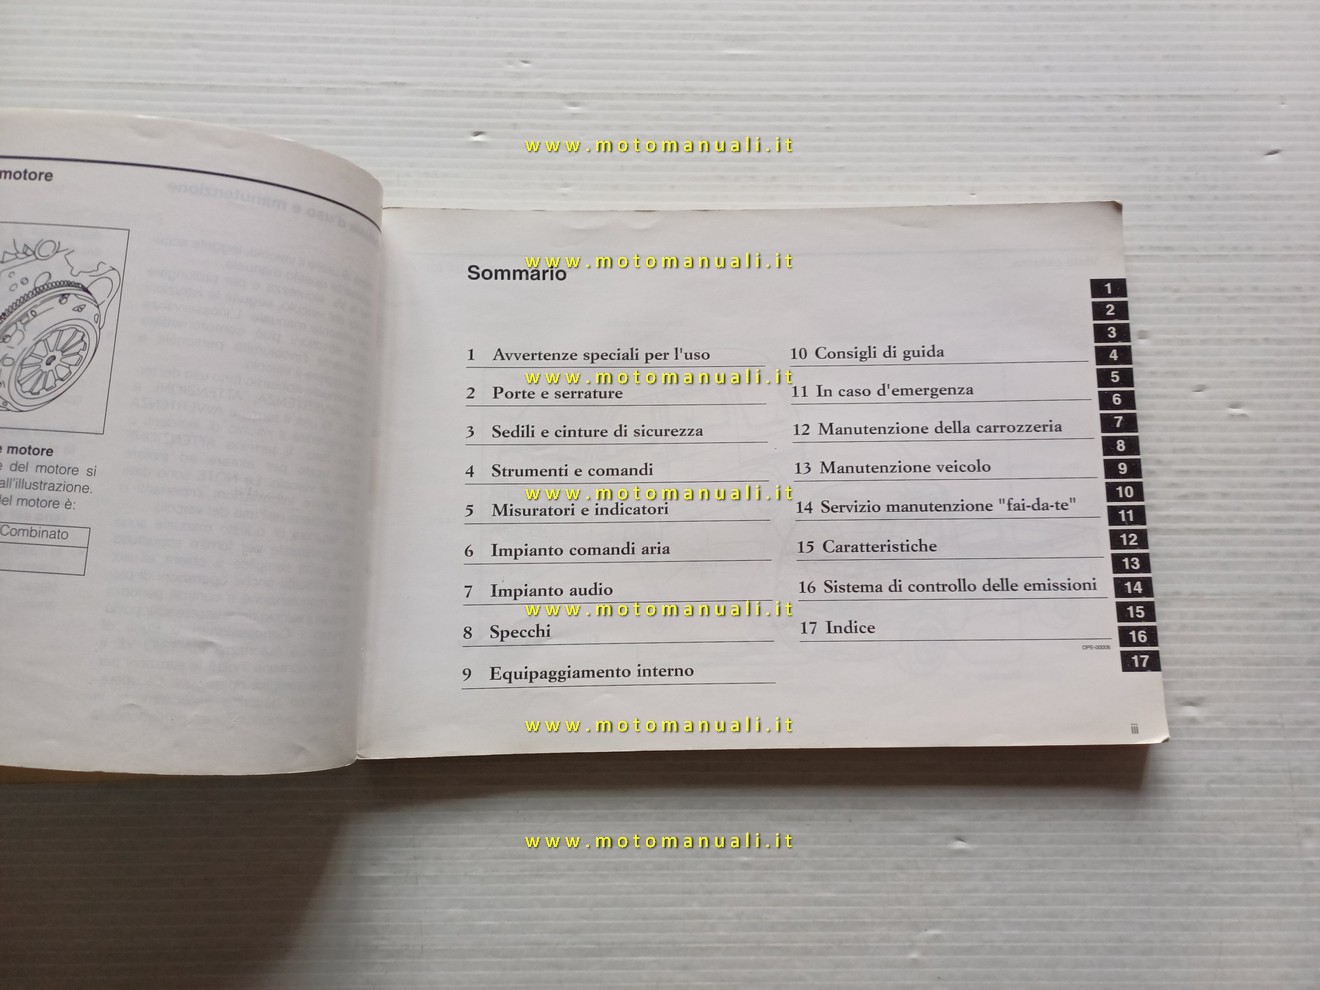 motore
e motore
e del motore si
all'illustrazione.
del motore è:
Combinato
Sommario
1 Avvertenze speciali per l'uso
2 Porte e serrature
3 Sedili e cinture di sicurezza
4 Strumenti e comandi
5 Misuratori e indicatori
6 Impianto comandi aria
7 Impianto audio
8 Specchi
9 Equipaggiamento interno
10 Consigli di guida
11 In caso d'emergenza
12 Manutenzione della carrozzeria
13 Manutenzione veicolo
14 Servizio manutenzione "fai-da-te"
15 Caratteristiche
16 Sistema di controllo delle emissioni
17 Indice
OPE-00006
1
2
3
4
5
6
7
8
9
10
11
12
13
14
15
16
17
iii
www.motomanuali.it
www.motomanuali.it
www.motomanuali.it
www.motomanuali.it
www.motomanuali.it
www.motomanuali.it
www.motomanuali.it